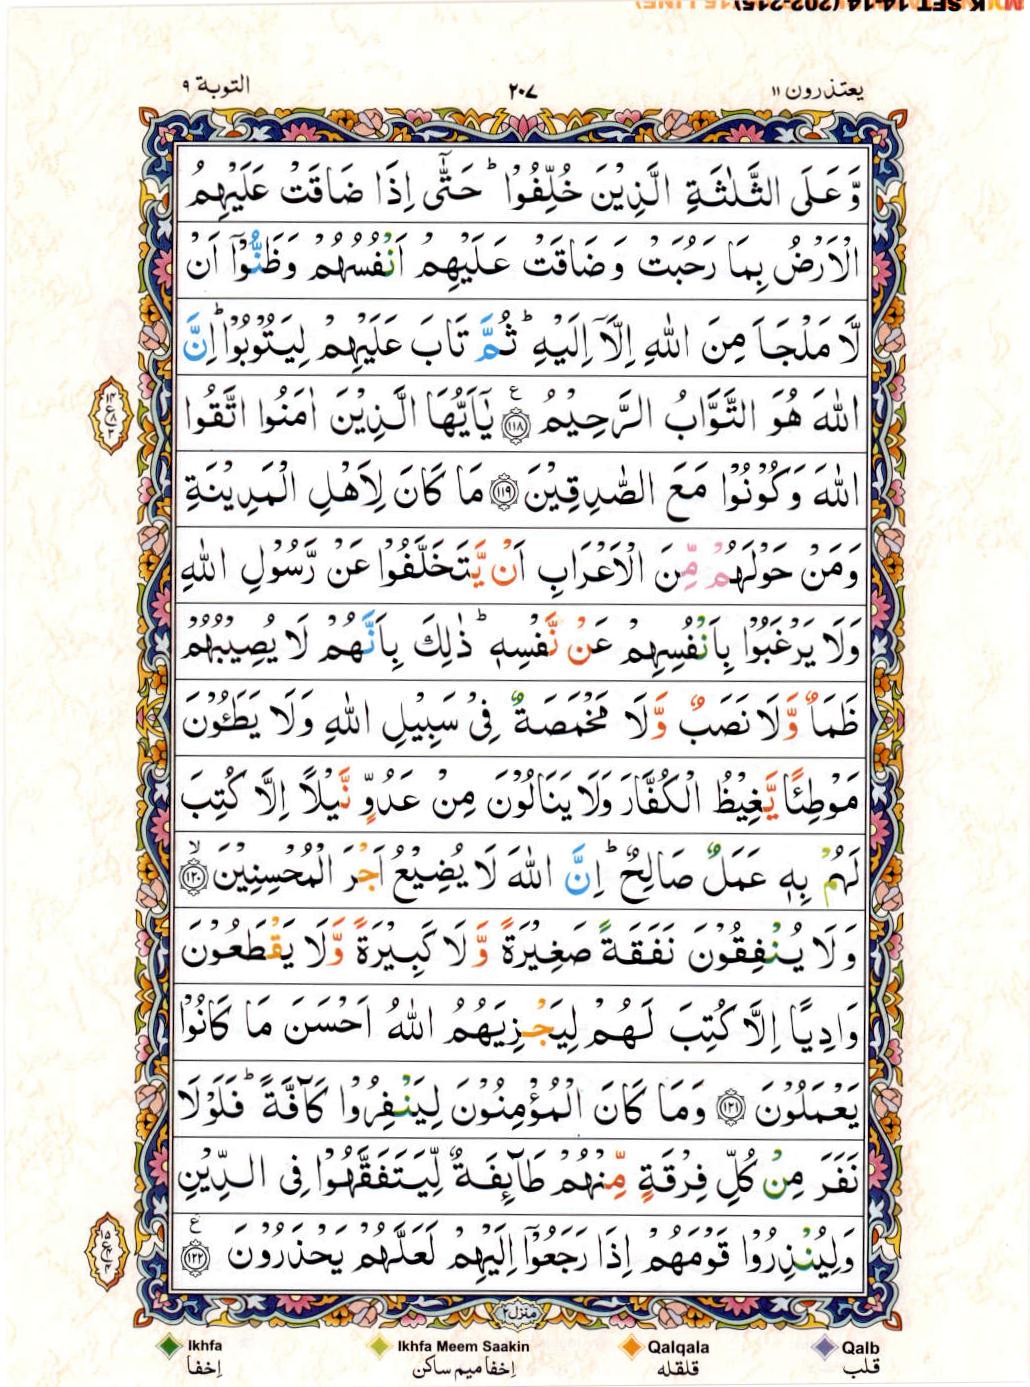 K SET-14-14 (202-215)
يعتذرون ١١
٢٠٧
التوبة ٩
وَّ عَلَى الثَّلٰثَةِ الَّذِيْنَ خُلِّفُوْا ؕ حَتّٰۤى اِذَا ضَاقَتْ عَلَيْهِمُ
الْاَرْضُ بِمَا رَحُبَتْ وَ ضَاقَتْ عَلَيْهِمْ اَنْفُسُهُمْ وَظَنُّوْۤا اَنْ
لَّا مَلْجَاَ مِنَ اللّٰهِ اِلَّاۤ اِلَيْهِ ؕ ثُمَّ تَابَ عَلَيْهِمْ لِيَتُوْبُوْا ؕ اِنَّ
اللّٰهَ هُوَ التَّوَّابُ الرَّحِيْمُ ﴿١١٨﴾ ع يٰۤاَيُّهَا الَّذِيْنَ اٰمَنُوا اتَّقُوا
اللّٰهَ وَ كُوْنُوْا مَعَ الصّٰدِقِيْنَ ﴿١١٩﴾ مَا كَانَ لِاَهْلِ الْمَدِيْنَةِ
وَمَنْ حَوْلَهُمْ مِّنَ الْاَعْرَابِ اَنْ يَّتَخَلَّفُوْا عَنْ رَّسُوْلِ اللّٰهِ
وَلَا يَرْغَبُوْا بِاَنْفُسِهِمْ عَنْ نَّفْسِهٖ ؕ ذٰلِكَ بِاَنَّهُمْ لَا يُصِيْبُهُمْ
ظَمَاٌ وَّلَا نَصَبٌ وَّلَا مَخْمَصَةٌ فِيْ سَبِيْلِ اللّٰهِ وَلَا يَطَـُٔوْنَ
مَوْطِئًا يَّغِيْظُ الْكُفَّارَ وَلَا يَنَالُوْنَ مِنْ عَدُوٍّ نَّيْلًا اِلَّا كُتِبَ
لَهُمْ بِهٖ عَمَلٌ صَالِحٌ ؕ اِنَّ اللّٰهَ لَا يُضِيْعُ اَجْرَ الْمُحْسِنِيْنَ ۙ﴿١٢٠﴾
وَلَا يُنْفِقُوْنَ نَفَقَةً صَغِيْرَةً وَّلَا كَبِيْرَةً وَّلَا يَقْطَعُوْنَ
وَادِيًا اِلَّا كُتِبَ لَهُمْ لِيَجْزِيَهُمُ اللّٰهُ اَحْسَنَ مَا كَانُوْا
يَعْمَلُوْنَ ﴿١٢١﴾ وَمَا كَانَ الْمُؤْمِنُوْنَ لِيَنْفِرُوْا كَآفَّةً ؕ فَلَوْلَا
نَفَرَ مِنْ كُلِّ فِرْقَةٍ مِّنْهُمْ طَآئِفَةٌ لِّيَتَفَقَّهُوْا فِي الدِّيْنِ
وَلِيُنْذِرُوْا قَوْمَهُمْ اِذَا رَجَعُوْۤا اِلَيْهِمْ لَعَلَّهُمْ يَحْذَرُوْنَ ﴿١٢٢﴾ ع
منزل ٢
Ikhfa
اِخفا
Ikhfa Meem Saakin
اِخفا ميم ساكن
Qalqala
قلقله
Qalb
قلب